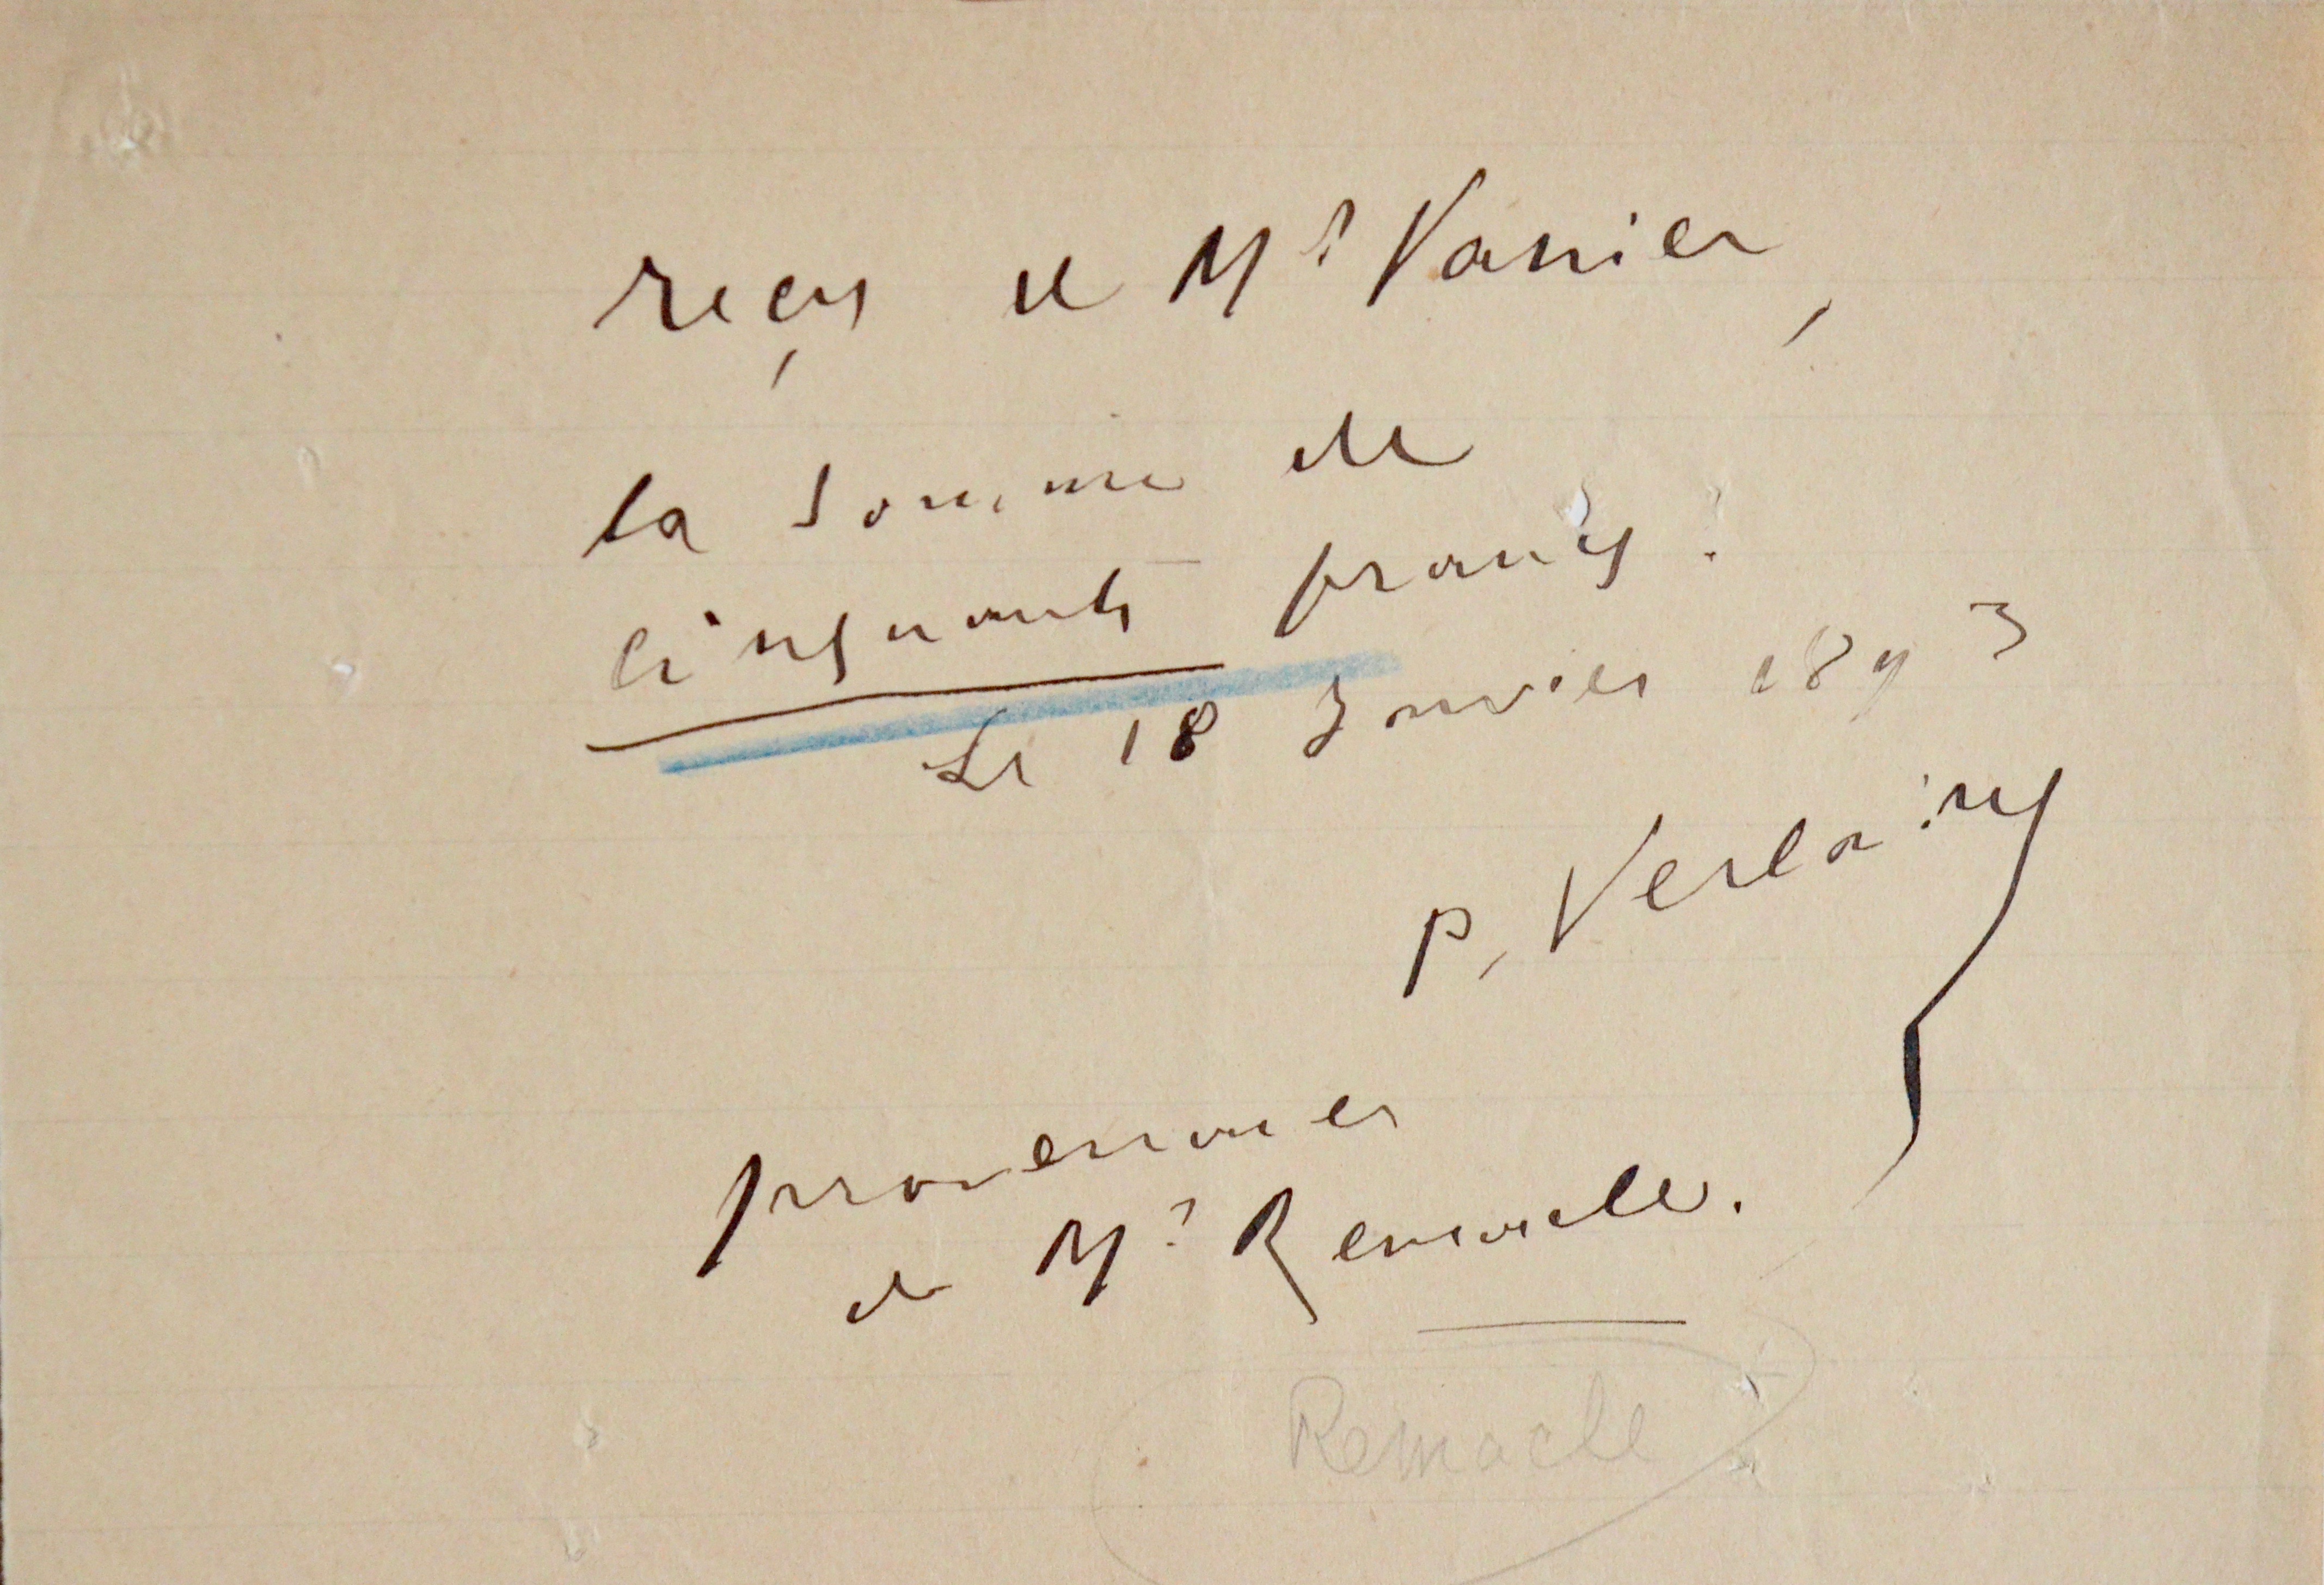 reçu de Mr Vanier,
la somme de
cinquante francs.
Le 18 Janvier 1893
P. Verlaine
provenance
de Mr Remacle.
Remacle